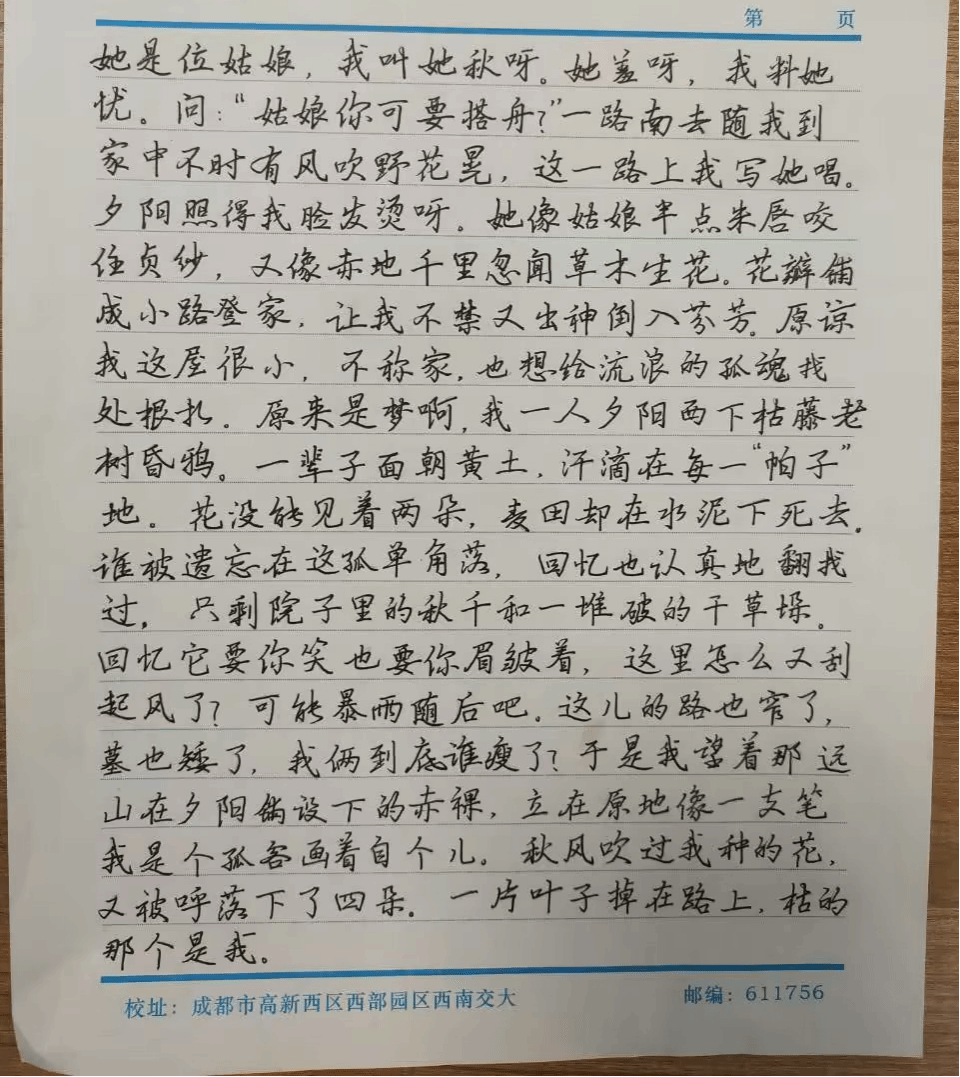 第 页
她是位姑娘，我叫她秋呀。她羞呀，我抖她
忧。问：“姑娘你可要搭舟？”一路南去随我到
家中不时有风吹野花晃，这一路上我写她唱。
夕阳照得我脸发烫呀。她像姑娘半点朱唇咬
住贞纱，又像赤地千里忽闻草木生花。花瓣铺
成小路登家，让我不禁又出神倒入芬芳。原谅
我这屋很小，不称家，也想给流浪的孤魂找
处根扎。原来是梦啊，我一人夕阳西下枯藤老
树昏鸦。一辈子面朝黄土，汗滴在每一“帕子”
地。花没能见着两朵，麦田却在水泥下死去。
谁被遗忘在这孤单角落，回忆也认真地翻找
过，只剩院子里的秋千和一堆破的干草垛。
回忆它要你笑也要你眉皱着，这里怎么又刮
起风了？可能暴雨随后吧。这儿的路也窄了，
墓也矮了，我俩到底谁瘦了？于是我望着那远
山在夕阳铺设下的赤裸，立在原地像一支笔
我是个孤客画着自个儿。秋风吹过我种的花，
又被呼落下了四朵。一片叶子掉在路上，枯的
那个是我。
校址：成都市高新西区西部园区西南交大 邮编：611756